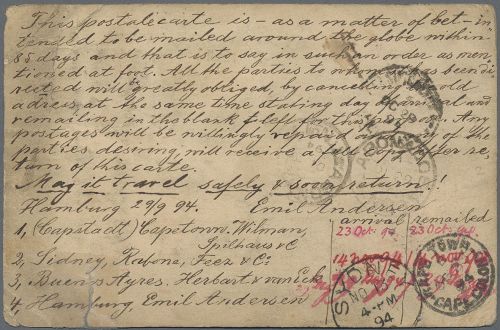 This postalcarte is - as a matter of bet - in
tended to be mailed around the globe within
85 days and that is to say in such an order as men
tioned at foot. All the parties to whom it has been di
rected will greatly obliged, by cancelling the old
adress at the same time stating day of arrival and
remailing in the blank left for this Any
postages will be willingly repaid and any of the
parties desiring, will receive a full copy after re
turn of this carte.
May it travel safely & soon return!
Hamburg 29/9 94. Emil Andersen
arrival remailed
1, (Capstadt) Capetown, Wilman, 23 Oct. 94 23 Oct. 94
Spilhaus & C
2, Sidney, Rabone, Feez & Co
3, Buenos Ayres. Herbart & van Eck
4, Hamburg, Emil Andersen
SYDNEY
NO
4- PM
94
CAPE TOWN
CAPE COLONY